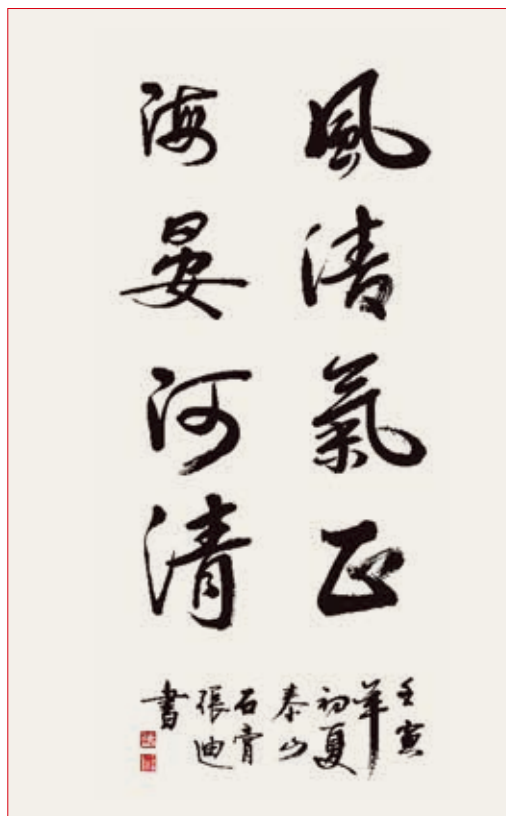 風清氣正
海晏河清
壬寅
年
初夏
泰山
石膏
張迪
書